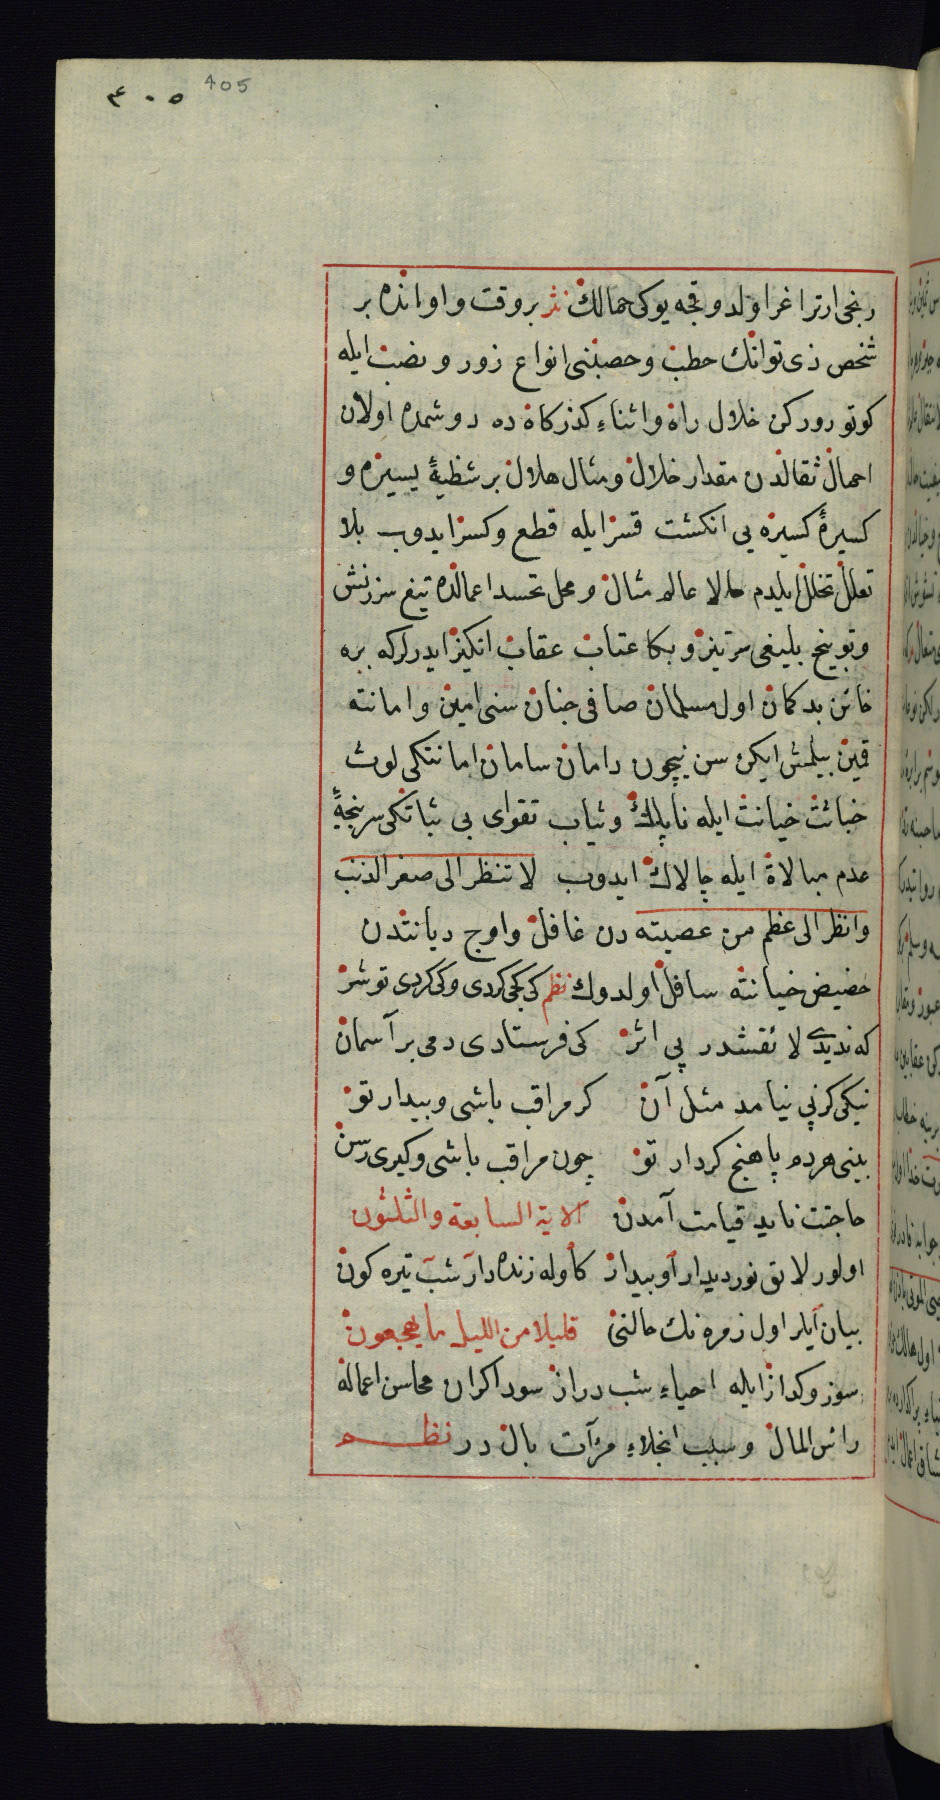 ٤٠٥ 405
رنجی ارتر اغر اولدوقجه یوکی حمالك نثر بر وقت و اوانده بر
شخص ذی توانك حطب و حصبنی انواع زور و نصب ایله
كوتورورکن خلال راه و اثناء کذرکاه ده دوشمده اولان
احمال ثقالدن مقدار خلال و مثال هلال بر شظیهٔ یسیره و
کسیرهٔ کسیره یی انکشت قسر ایله قطع و کسر ایدوب بلا
تعلل تخلل ایلدم حالا عالم مثال و محل تجسد اعمالده تیغ سرزنش
و توبیخ بلیغی سرتیز و بکا عتاب عقاب انکیز ایدرلرکه بره
خائن بدکمان اول مسلمان صافی جنان سنی امین و امانته
قمین بیلمش ایکن سن نیچون دامان سامان امانتکی لوث
خباثت خیانت ایله ناپاك و ثیاب تقوای بی ثباتکی سرپنجهٔ
عدم مبالاة ایله چالاك ایدوب لا تنظر الی صغر الذنب
وانظر الی عظم من عصیته دن غافل و اوج دیانتدن
حضیض خیانته سافل اولدوك نظم کی کجی کردی و کی کردی تو شر
که ندیدی لا ئقشدر پی اثر کی فرستادی دمی بر آسمان
نیکی کز پی نیامد مثل آن کر مراقب باشی و بیدار تو
بینی هردم پاهنج کردار تو چون مراقب باشی و کیری رسن
حاجتت ناید قیامت آمدن الایة السابعة والثلثون
اولور لایق نور دیدار او بیدار کاوله زنده دار شب تیره کون
بیان ایلر اول زمره نك حالنی قلیلا من اللیل ما یهجعون
سوز و کداز ایله احیاء شب دراز سوداکران محاسن اعماله
رائس المال و سبب انجلاء مرآت بال در نظم